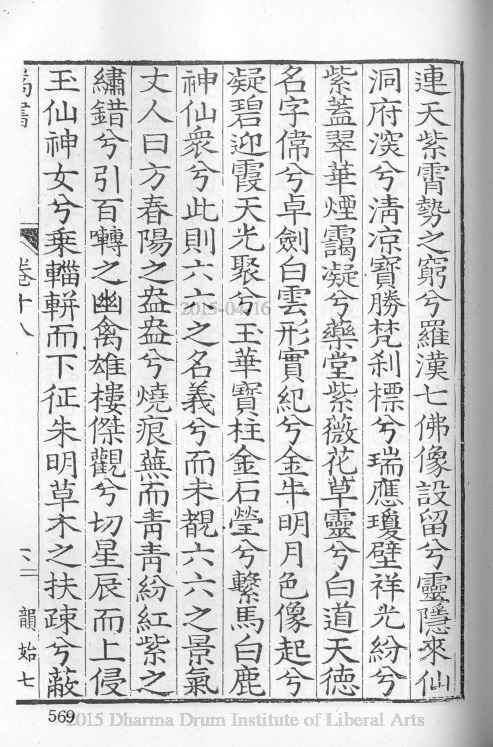 連天紫霄勢之窮兮羅漢七佛像設留兮靈隱來仙
洞府深兮清凉寶勝梵刹標兮瑞應瓊壁祥光紛兮
紫蓋翠華煙靄凝兮藥堂紫微花草靈兮白道天德
名字偉兮卓劍白雲形實紀兮金牛明月色像起兮
凝碧迎霞天光聚兮玉華寶柱金石瑩兮繫馬白鹿
神仙衆兮此則六六之名義兮而未覩六六之景氣
丈人曰方春陽之盎盎兮燒痕蕪而青青紛紅紫之
繡錯兮引百囀之幽禽雄樓傑觀兮切星辰而上侵
玉仙神女兮乗輜軿而下征朱明草木之扶疎兮蔽
卷十八
韻始七
569
2015-04-16
2015 Dharma Drum Institute of Liberal Arts